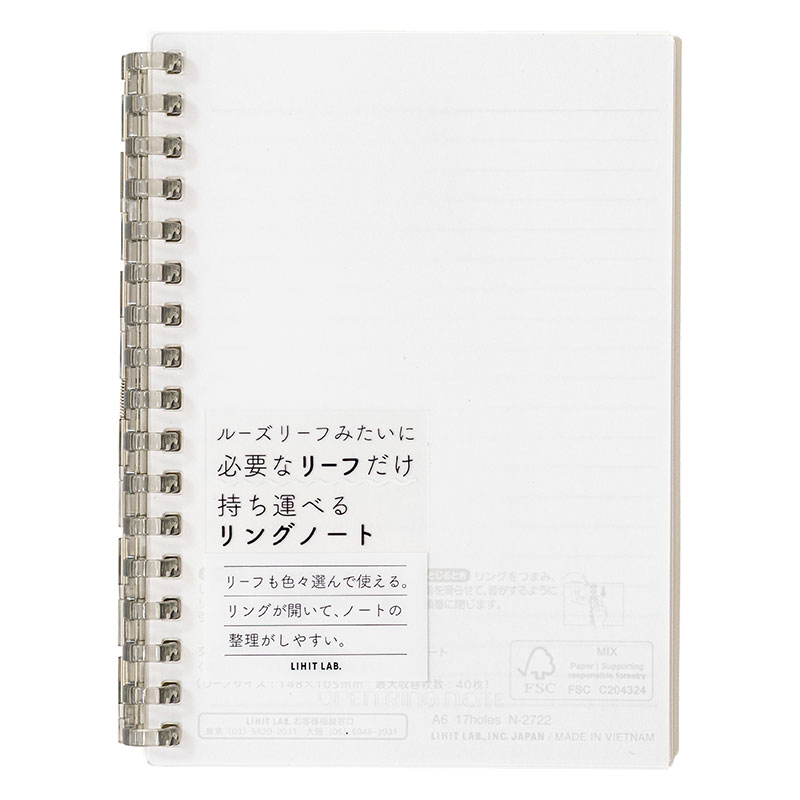 ルーズリーフみたいに
必要なリーフだけ
持ち運べる
リングノート
リーフも色々選んで使える。
リングが開いて、ノートの
整理がしやすい。
LIHIT LAB.
とじるとき リングをつまみ、
指を滑らせて、音がするように
順番に閉じます。
MIX
Paper | Supporting
responsible forestry
FSC
FSC C204324
(リーフサイズ:148×105mm 最大収容枚数:40枚)
OPEN RING NOTE
A6 17holes N-2722
LIHIT LAB. お客様相談窓口
東京 (03) 5820-2031 大阪 (06) 6946-3931
LIHIT LAB., INC. JAPAN / MADE IN VIETNAM